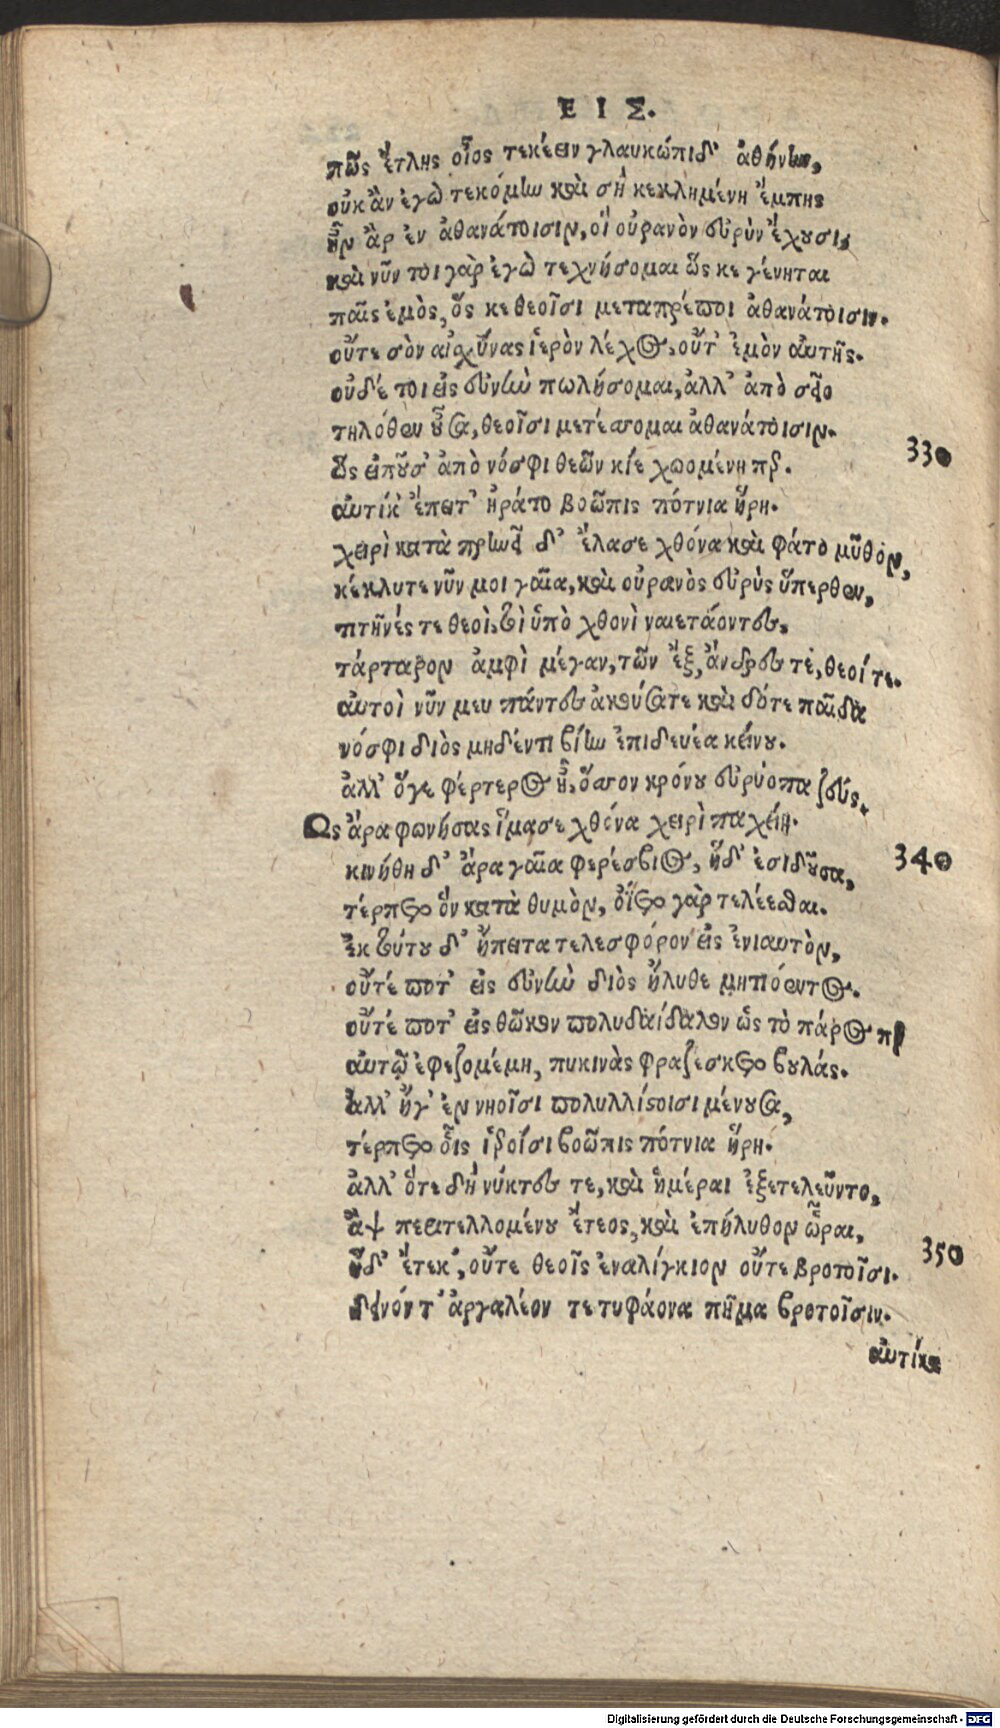 ΕΙΣ.
πῶς ἔτλης οἶος τεκέειν γλαυκώπιδ' ἀθήνην,
οὐκ ἂν ἐγὼ τεκόμην καὶ σὴ κεκλημένη ἔμπης
ἦν ἄρ ἐν ἀθανάτοισιν, οἳ οὐρανὸν εὐρὺν ἔχουσι,
καὶ νῦν τοι γὰρ ἐγὼ τεχνήσομαι ὥς κε γένηται
παῖς ἐμὸς, ὅς κε θεοῖσι μεταπρέποι ἀθανάτοισιν.
οὔτε σὸν αἰσχύνας ἱερὸν λέχος, οὔτ' ἐμὸν αὐτῆς.
οὐδέ τοι εἰς εὐνὴν πωλήσομαι, ἀλλ' ἀπὸ σεῖο
τηλόθεν οὖσα, θεοῖσι μετέσσομαι ἀθανάτοισιν.
330
ὣς εἰποῦσ' ἀπὸ νόσφι θεῶν κίε χωομένη περ.
αὐτίκ' ἔπειτ' ἠρᾶτο βοῶπις πότνια ἥρη.
χειρὶ καταπρηνεῖ δ' ἔλασε χθόνα καὶ φάτο μῦθον,
κέκλυτε νῦν μοι γαῖα, καὶ οὐρανὸς εὐρὺς ὕπερθεν,
πτῆνές τε θεοὶ, τοὶ ὑπὸ χθονὶ ναιετάοντες,
τάρταρον ἀμφὶ μέγαν, τῶν ἔξ, ἄνδρες τέ, θεοί τε.
αὐτοὶ νῦν μευ πάντες ἀκούσατε καὶ δότε παῖδα
νόσφι διὸς μηδέν τι βίην ἐπιδευέα κείνου.
ἀλλ' ὅγε φέρτερος ᾖ, ὅσσον κρόνου εὐρύοπα ζεύς.
Ὣς ἄρα φωνήσας ἵμασε χθόνα χειρὶ παχείῃ.
340
κινήθη δ' ἄρα γαῖα φερέσβιος, ἥδ' ἐσιδοῦσα,
τέρπετο ὃν κατὰ θυμὸν, ὀΐετο γὰρ τελέεσθαι.
ἐκ τούτου δ' ἤπειτα τελεσφόρον εἰς ἐνιαυτὸν,
οὔτέ ποτ' εἰς εὐνὴν διὸς ἤλυθε μητιόεντος.
οὔτέ ποτ' εἰς θῶκον πολυδαίδαλον ὡς τὸ πάρος περ
αὐτῷ ἐφεζομέμη, πυκινὰς φραζέσκετο βουλάς.
ἀλλ' ἥγ' ἐν νηοῖσι πολυλλίστοισι μένουσα,
τέρπετο οἷς ἱεροῖσι βοῶπις πότνια ἥρη.
ἀλλ' ὅτε δὴ νύκτες τε, καὶ ἡμέραι ἐξετελεῦντο,
ἂψ περιτελλομένου ἔτεος, καὶ ἐπήλυθον ὧραι,
350
ἥδ' ἔτεκ', οὔτε θεοῖς ἐναλίγκιον οὔτε βροτοῖσι.
δεινόν τ' ἀργαλέον τε τυφάονα πῆμα βροτοῖσιν.
αὐτίκα
Digitalisierung gefördert durch die Deutsche Forschungsgemeinschaft - DFG